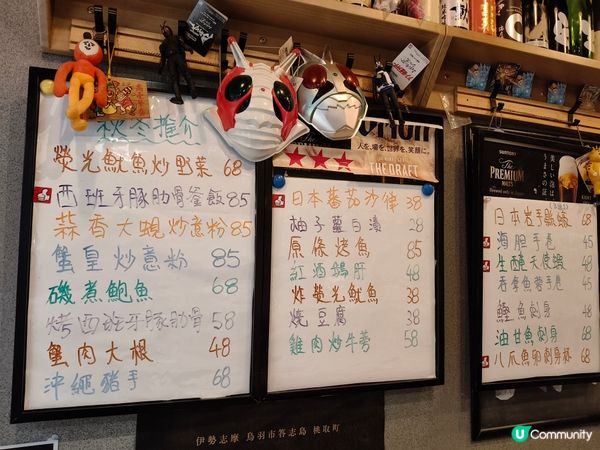 秋冬推介
熒光魷魚炒野菜 68
西班牙豚肋骨釜飯 85
蒜香大蜆炒意粉 85
蟹皇炒意粉 85
磯煮鮑魚 68
烤西班牙豚肋骨 58
蟹肉大根 48
沖繩豬手 68
人を、場を、世界を、笑顔に。
THE DRAFT
日本蕃茄沙律 38
柚子蘿白漬 28
原條烤魚 85
紅酒鵝肝 48
炸熒光魷魚 38
燒豆腐 38
雞肉炒牛蒡 58
伊勢志摩 鳥羽市答志島 桃取町
SUNTORY
The PREMIUM MALT'S
美しい泡は、うまさの証。
日本岩手縣蠔 68
海胆手卷 45
生西京天使蝦 48
吞拿魚蓉手卷 45
鰹魚刺身
油甘魚刺身
八爪魚刺身
U Community